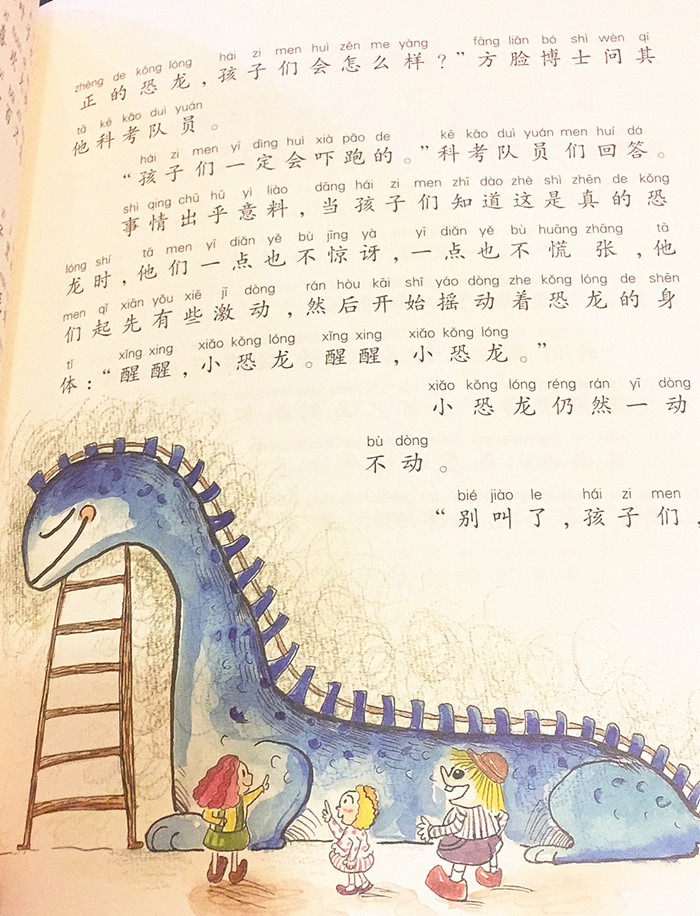 zhèng de kǒng lóng hái zi men huì zěn me yàng fāng liǎn bó shì wèn qí
正的恐龙，孩子们会怎么样？”方脸博士问其
tā kē kǎo duì yuán
他科考队员。
hái zi men yí dìng huì xià pǎo de kē kǎo duì yuán men huí dá
“孩子们一定会吓跑的。”科考队员们回答。
shì qing chū hū yì liào dāng hái zi men zhī dào zhè shì zhēn de kǒng
事情出乎意料，当孩子们知道这是真的恐
lóng shí tā men yì diǎn yě bù jīng yà yì diǎn yě bù huāng zhāng tā
龙时，他们一点也不惊讶，一点也不慌张，他
men qǐ xiān yǒu xiē jī dòng rán hòu kāi shǐ yáo dòng zhe kǒng lóng de shēn
们起先有些激动，然后开始摇动着恐龙的身
tǐ xǐng xing xiǎo kǒng lóng xǐng xing xiǎo kǒng lóng
体：“醒醒，小恐龙。醒醒，小恐龙。”
xiǎo kǒng lóng réng rán yī dòng
小恐龙仍然一动
bù dòng
不动。
bié jiào le hái zi men
“别叫了，孩子们，